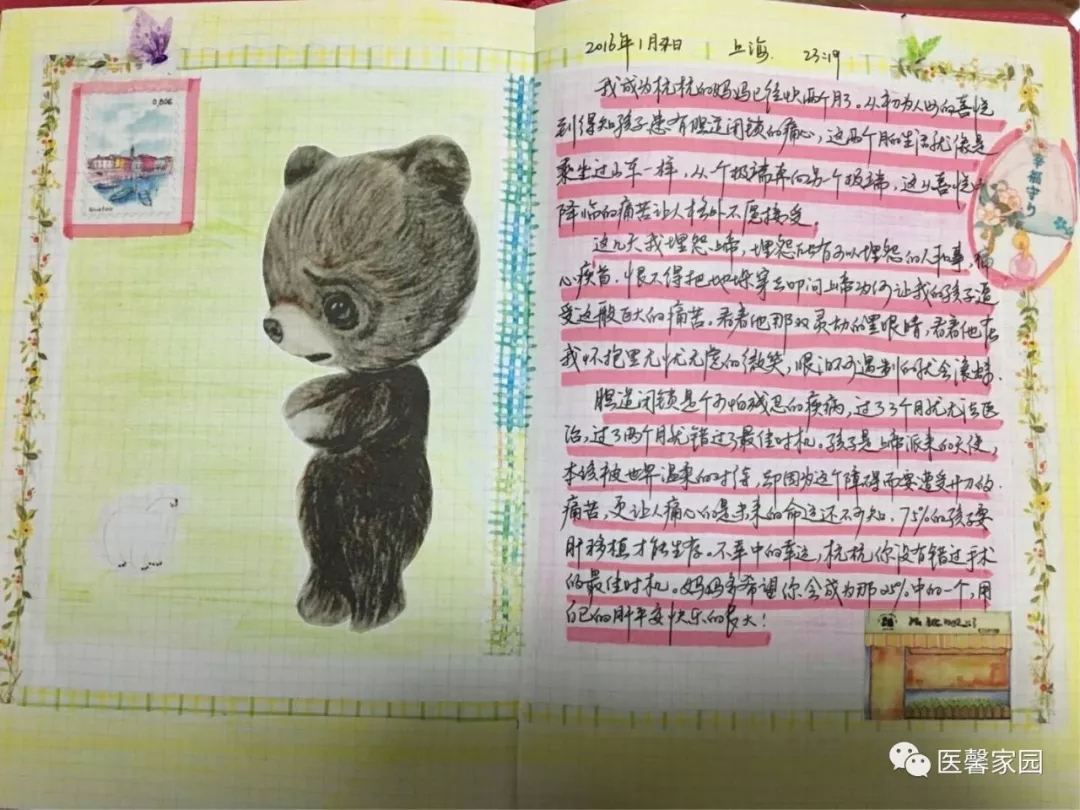 0,80€
2016年1月 日 上海. 23:19
我成为杭杭的妈妈已经快两个月了。从初为人母的喜悦
到得知孩子患有胆道闭锁的痛心，这两个月的生活就像是
乘坐过山车一样，从一个极端奔向另一个极端，这从喜悦中
降临的痛苦让人格外不愿接受。
这几天我埋怨上帝，埋怨所有可以埋怨的人和事，痛
心疾首，恨不得把地球穿 去叩问上帝为何让我的孩子遭
受这般巨大的痛苦。看着他那双灵动的黑眼睛，看着他在
我怀抱里无忧无虑的微笑，眼泪不可遏制的就会滚
胆道闭锁是个可怕残忍的疾病，过了3个月就无法医
治，过了两个月就错过了最佳时机。孩子是上帝派来的天使，
本该被世界温柔的对待，却因为这个障碍而要遭受开刀的
痛苦，更让人痛心的是未来的命运还不可知，75%的孩子要
肝移植才能生存。不幸中的幸运，杭杭你没有错过手术
的最佳时机。妈妈多希望你会成为那25%中的一个，用
自己的肝平安快乐的长大！
幸福守り
医馨家园